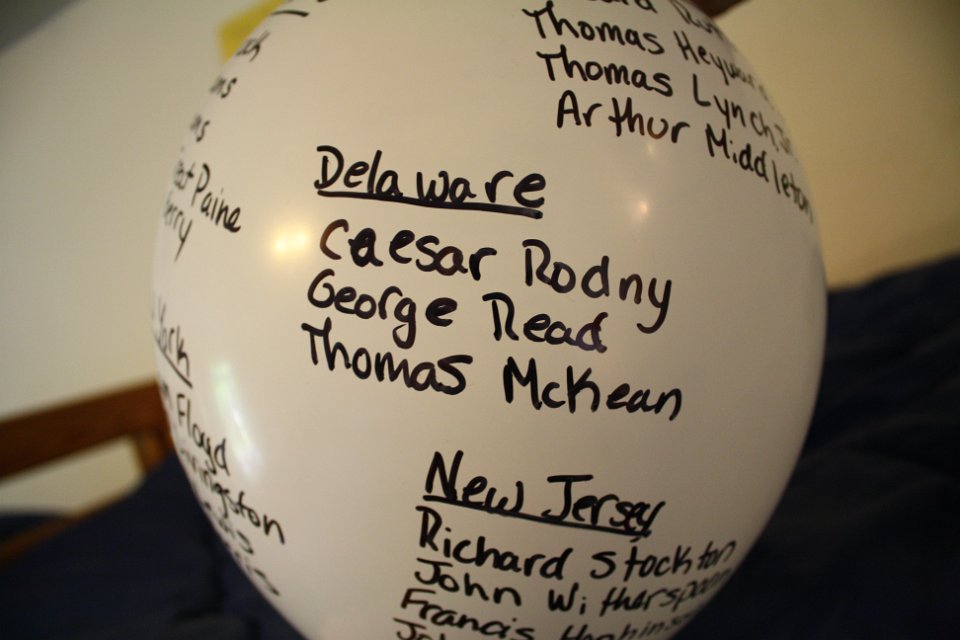 Thomas Heyward
Thomas Lynch Jr
Arthur Middleton
Paine
Delaware
Caesar Rodny
George Read
Thomas McKean
York
Floyd
New Jersey
Richard Stockton
John Witherspoon
Francis Hopkinson